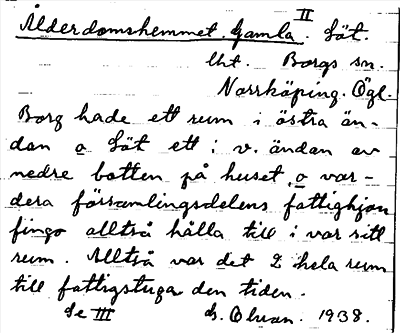 II
Ålderdomshemmet. Gamla. Löt.
lht. Borgs sn.
Norrköping. Ögl.
Borg hade ett rum i östra än-
dan o Löt ett i v. ändan av
nedre botten på huset, o var-
dera församlingsdelens fattighjon
fingo alltså hålla till i var sitt
rum. Alltså var det 2 hela rum
till fattigstuga den tiden.
Se III G. Olsson. 1938.